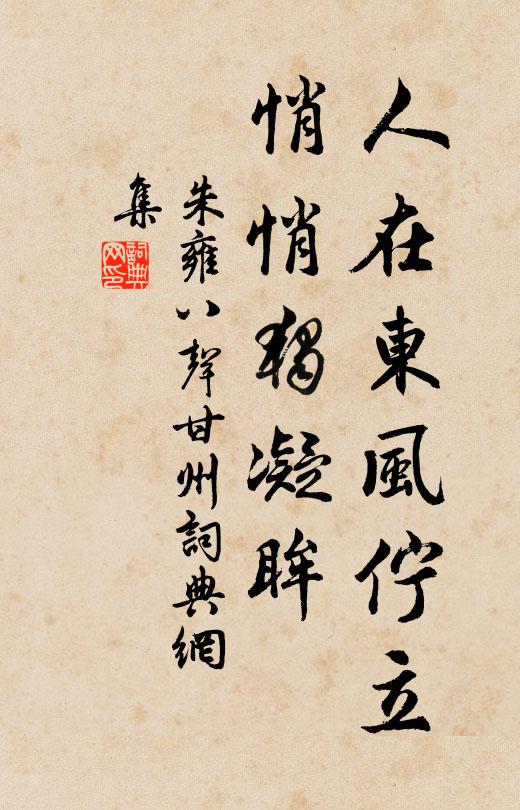 人在東風佇立
悄悄獨凝眸
朱雍八聲甘州詞典網
集
詞典網印